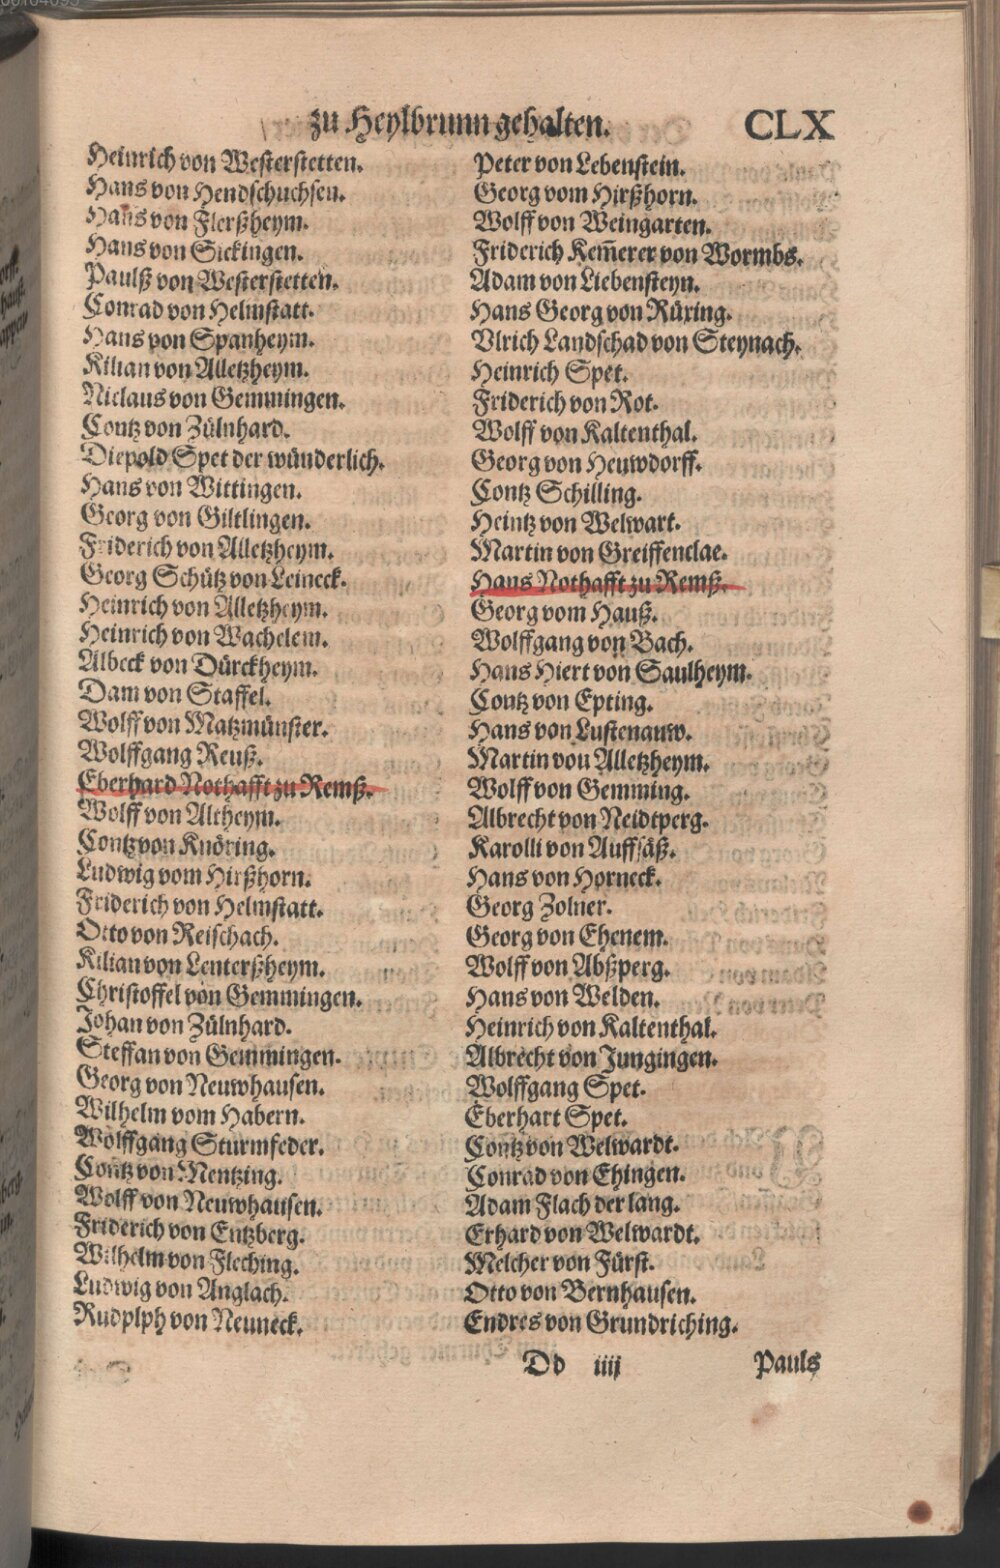 zu Heylbrunn gehalten. CLX
Heinrich von Westerstetten.
Hans von Hendschuchsen.
Hans von Flerßheym.
Hans von Sickingen.
Paulß von Westerstetten.
Conrad von Helmstatt.
Hans von Spanheym.
Kilian von Alletzheym.
Niclaus von Gemmingen.
Contz von Zülnhard.
Diepold Spet der wünderlich.
Hans von Wittingen.
Georg von Giltlingen.
Friderich von Alletzheym.
Georg Schütz von Leineck.
Heinrich von Alletzheym.
Heinrich von Wachelem.
Albeck von Dürckheym.
Dam von Staffel.
Wolff von Matzmünster.
Wolffgang Reuß.
Eberhard Nothafft zu Remß.
Wolff von Altheym.
Contz von Knöring.
Ludwig vom Hirßhorn.
Friderich von Helmstatt.
Otto von Reischach.
Kilian von Lenterßheym.
Christoffel von Gemmingen.
Johan von Zülnhard.
Steffan von Gemmingen.
Georg von Neuwhausen.
Wilhelm vom Habern.
Wolffgang Sturmfeder.
Contz von Mentzing.
Wolff von Neuwhausen.
Friderich von Entzberg.
Wilhelm von Fleching.
Ludwig von Anglach.
Rudplph von Neuneck.
Peter von Lebenstein.
Georg vom Hirßhorn.
Wolff von Weingarten.
Friderich Kem̃erer von Wormbs.
Adam von Liebensteyn.
Hans Georg von Rüxing.
Vlrich Landschad von Steynach.
Heinrich Spet.
Friderich von Rot.
Wolff von Kaltenthal.
Georg von Heuwdorff.
Contz Schilling.
Heintz von Welwart.
Martin von Greiffenclae.
Hans Nothafft zu Remß.
Georg vom Hauß.
Wolffgang von Bach.
Hans Hiert von Saulheym.
Contz von Epting.
Hans von Lustenauw.
Martin von Alletzheym.
Wolff von Gemming.
Albrecht von Neidtperg.
Karolli von Auffsäß.
Hans von Horneck.
Georg Zolner.
Georg von Ehenem.
Wolff von Abßperg.
Hans von Welden.
Heinrich von Kaltenthal.
Albrecht von Jungingen.
Wolffgang Spet.
Eberhart Spet.
Contz von Welwardt.
Conrad von Ehingen.
Adam Flach der lang.
Erhard von Welwardt.
Melcher von Fürst.
Otto von Bernhausen.
Endres von Grundriching.
Dd iiij Pauls